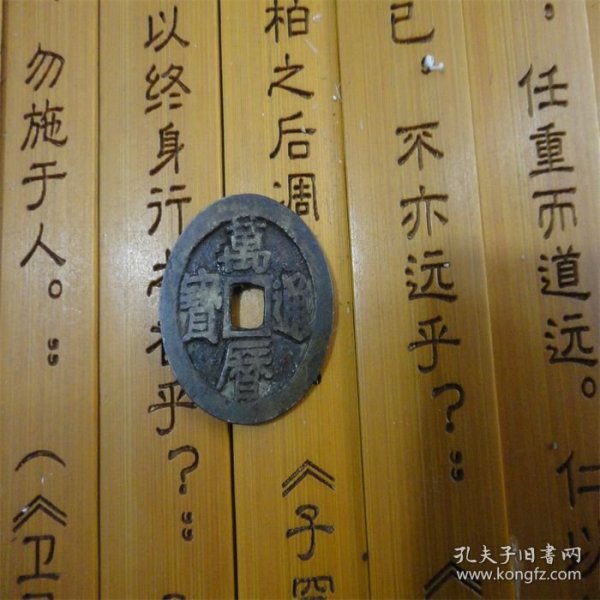 任重而道远。仁以
已。不亦远乎？”《
柏之后凋 《子罕
以终身行 乎？”
勿施于人。”（《卫
萬曆通寶
孔夫子旧书网
www.kongfz.com